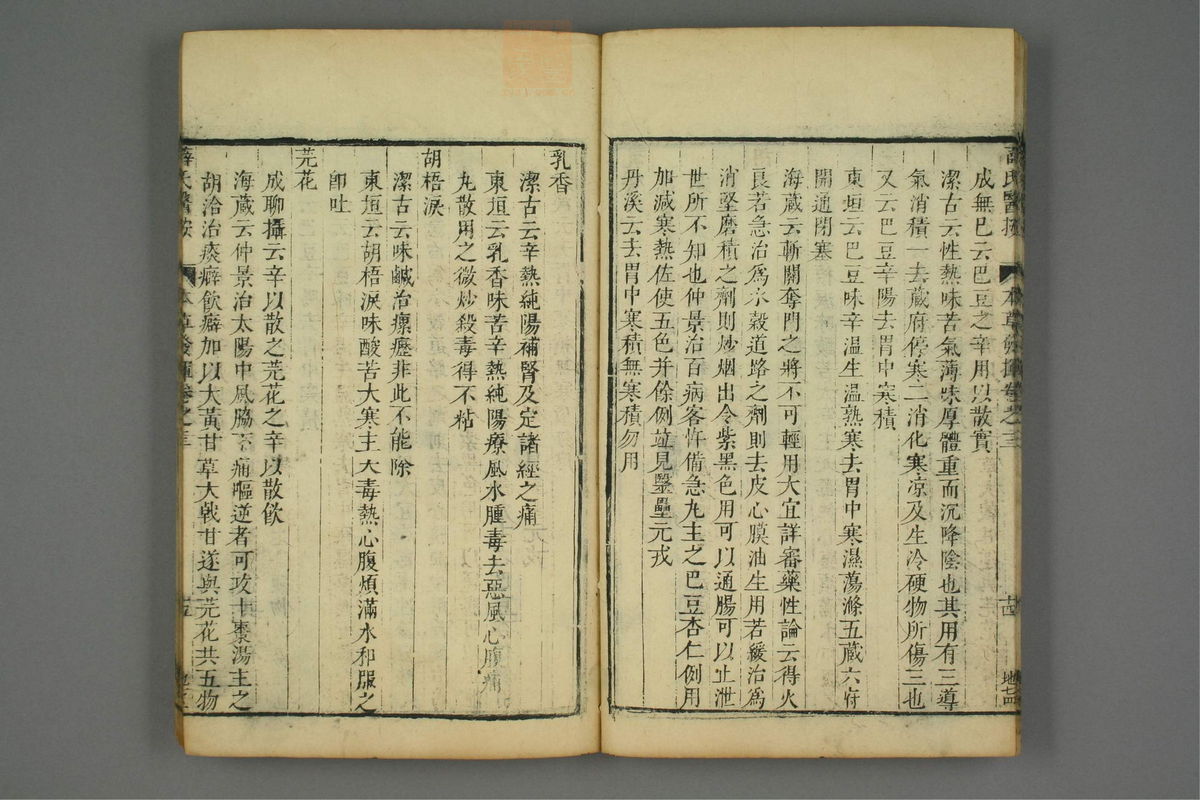 成無已云巴豆之辛用以散實
潔古云性熱味苦氣薄味厚體重而沉降陰也其用有三導
氣消積一去藏府停寒二消化寒凉及生冷硬物所傷三也
又云巴豆辛陽去胃中寒積
東垣云巴豆味辛温生温熟寒去胃中寒濕蕩滌五藏六府
開通閉塞
海藏云斬關奪門之將不可輕用大宜詳審藥性論云得火
良若急治爲水穀道路之劑則去皮心膜油生用若緩治爲
消堅磨積之劑則炒烟出令紫黑色用可以通腸可以止泄
世所不知也仲景治百病客忤備急丸主之巴豆杏仁例用
加減寒熱佐使五色并餘例竝見毉壘元戎
丹溪云去胃中寒積無寒積勿用
薛氏醫按 本草發揮卷之三 古 地七四
乳香
潔古云辛熱純陽補腎及定諸經之痛
東垣云乳香味苦辛熱純陽療風水腫毒去惡風心腹痛
丸散用之微炒殺毒得不粘
胡梧淚
潔古云味鹹治瘰癧非此不能除
東垣云胡梧淚味酸苦大寒主大毒熱心腹煩滿水和服之
卽吐
芫花
成聊攝云辛以散之芫花之辛以散飲
海藏云仲景治太陽中風脇下痛嘔逆者可攻十棗湯主之
胡洽治痰癖飲癖加以大黃甘草大戟甘遂與芫花共五物
薛氏醫按 本草發揮卷之三